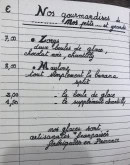 € Nos gourmandises à
Mes petits et grands
7,00 • Zorgs
deux boules de glace,
chocolat noir, chantilly
8,00 • Maxime
tout simplement la banana
split
2,00 . la boule de glace
1,00 . le supplément chantilly
nos glaces sont
artisanales françaises
fabriquées en Provence